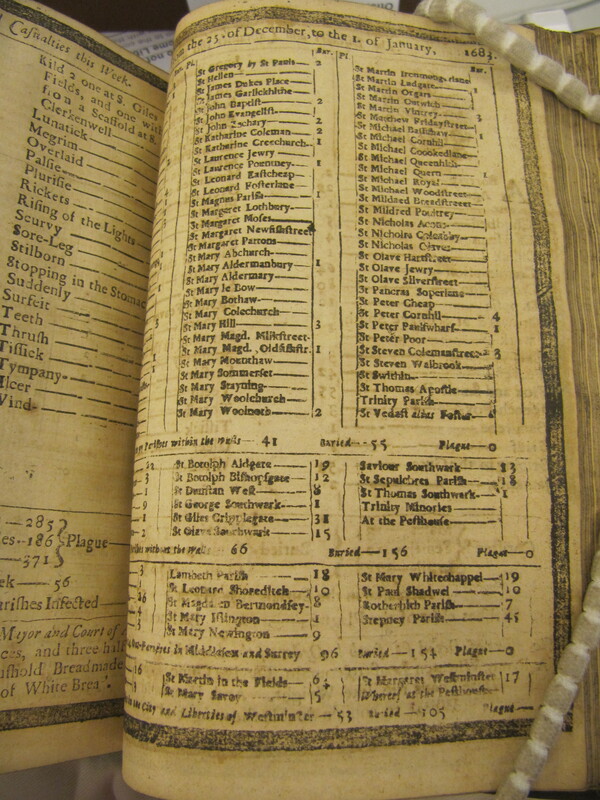 Casualties this Week.
Kild 2 one at S. Giles
Fields, and one with
from a Scaffold at S.
Clerkenwell
Lunatick
Megrim
Overlaid
Palsie
Plurisie
Rickets
Rising of the Lights
Scurvy
Sore-Leg
Stilborn
Stopping in the Stomac
Suddenly
Surfeit
Teeth
Thrush
Tissick
Tympany
Ulcer
Wind
285
186 Plague
371
56
arishes Infected
Mayor and Court of
ces, and three half
ushold Bread made
of White Brea
the 25. of December, to the 1. of January, 1683.
Bur. Pl.
St Gregory by St Pauls 2
St Hellen
St James Dukes Place
St James Garlickhithe
St John Baptist 2
St John Evangelist
St John Zachary 2
St Katharine Coleman 2
St Katharine Creechurch 1
St Laurence Jewry
St Laurence Pountney 1
St Leonard Eastcheap
St Leonard Fosterlane
St Magnus Parish 1
St Margaret Lothbury
St Margaret Moses
St Margaret Newfishstreet
St Margaret Pattons
St Mary Abchurch
St Mary Aldermanbury 1
St Mary Aldermary
St Mary le Bow
St Mary Bothaw
St Mary Colechurch
St Mary Hill 3
St Mary Magd. Milkstreet
St Mary Magd. Oldfishstr. 1
St Mary Mounthaw
St Mary Sommerset
St Mary Stayning
St Mary Woolchurch
St Mary Woolnoth 2
Bur.
St Martin Ironmongerlane
St Martin Ludgate 1
St Martin Orgars
St Martin Outwich
St Martin Vintrey 3
St Matthew Fridaystreet
St Michael Bassishaw 1
St Michael Cornhil
St Michael Crookedlane
St Michael Queenhith
St Michael Quern 1
St Michael Royal
St Michael Woodstreet
St Mildred Breadstreet
St Mildred Poultrey
St Nicholas Acons
St Nicholas Coleabby
St Nicholas Olaves
St Olave Hartstreet
St Olave Jewry
St Olave Silverstreet
St Pancras Soperlane
St Peter Cheap
St Peter Cornhil 4
St Peter Paulswharf 1
St Peter Poor
St Steven Colemanstreet 3
St Steven Walbrook
St Swithin
St Thomas Apostle
Trinity Parish
St Vedast alias Foster
Parishes within the walls 41 Buried 55 Plague 0
St Botolph Aldgate 19
St Botolph Bishopsgate 12
St Dunstan West 8
St George Southwark 1
St Giles Cripplegate 31
St Olave Southwark 15
Saviour Southwark 23
St Sepulchres Parish 18
St Thomas Southwark 1
Trinity Minories
At the Pesthouse
without the Walls 66 Buried 156 Plague 0
Lambeth Parish 18
St Leonard Shoreditch 10
St Magdalen Bermondsey 8
St Mary Islington 1
St Mary Newington 9
St Mary Whitechappel 19
St Paul Shadwel 10
Rotherhith Parish 7
Stepney Parish 45
Out-Parishes in Middlesex and Surrey 96 Buried 154 Plague 0
St Martin in the Fields 64
St Mary Savoy 5
St Margaret Westminster 17
Whereof at the Pesthouse
in the City and Liberties of Westminster 53 Buried 105 Plague